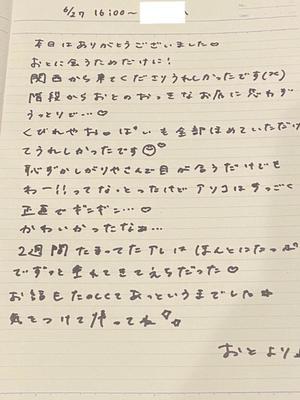 6/27 16:00〜
本日はありがとうございました♡
おとに会うためだけに!
関西から来てくださりうれしかったです(××)
階段からおとのおっきなお尻に思わず
うっとりで…♡
くびれやお○ぱいも全部ほめていただけ
てうれしかったです
恥ずかしがりやさんで目が合うだけでも
わー!!ってなっとったけどアソコはすっごく
正直でギンギン…♡
かわいかったなぁ…
2週間たまってたアレはほんとにたっぷ
でずっと垂れてきてえちだった♡
お話もたのしくてあっというまでした☆
気をつけて帰ってね
おとより